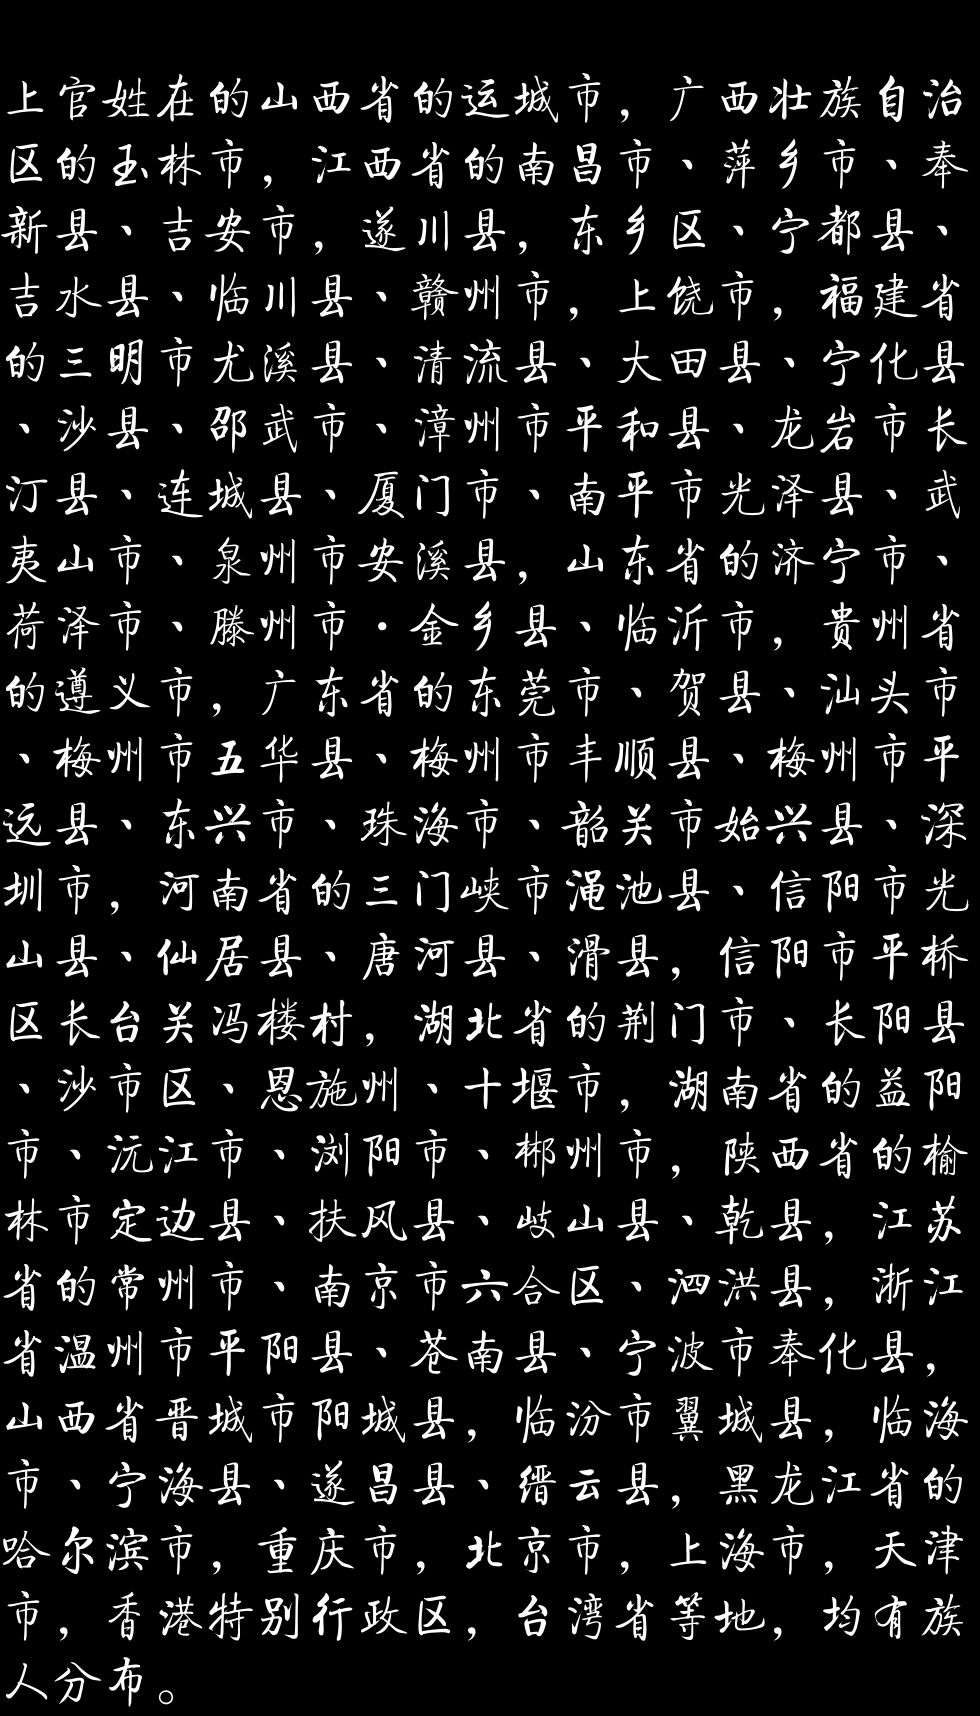 上官姓在的山西省的运城市，广西壮族自治
区的玉林市，江西省的南昌市、萍乡市、奉
新县、吉安市，遂川县，东乡区、宁都县、
吉水县、临川县、赣州市，上饶市，福建省
的三明市尤溪县、清流县、大田县、宁化县
、沙县、邵武市、漳州市平和县、龙岩市长
汀县、连城县、厦门市、南平市光泽县、武
夷山市、泉州市安溪县，山东省的济宁市、
荷泽市、滕州市·金乡县、临沂市，贵州省
的遵义市，广东省的东莞市、贺县、汕头市
、梅州市五华县、梅州市丰顺县、梅州市平
远县、东兴市、珠海市、韶关市始兴县、深
圳市，河南省的三门峡市渑池县、信阳市光
山县、仙居县、唐河县、滑县，信阳市平桥
区长台关冯楼村，湖北省的荆门市、长阳县
、沙市区、恩施州、十堰市，湖南省的益阳
市、沅江市、浏阳市、郴州市，陕西省的榆
林市定边县、扶风县、岐山县、乾县，江苏
省的常州市、南京市六合区、泗洪县，浙江
省温州市平阳县、苍南县、宁波市奉化县，
山西省晋城市阳城县，临汾市翼城县，临海
市、宁海县、遂昌县、缙云县，黑龙江省的
哈尔滨市，重庆市，北京市，上海市，天津
市，香港特别行政区，台湾省等地，均有族
人分布。